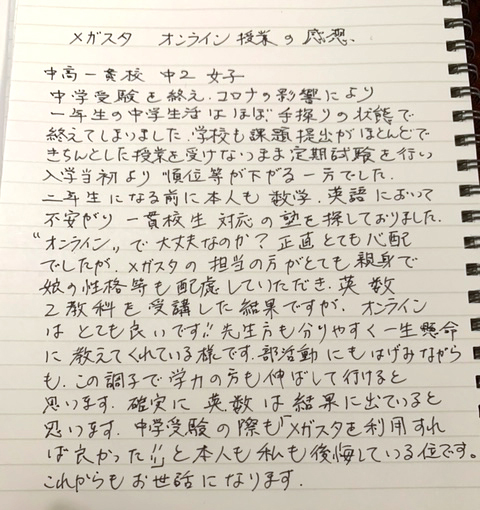 メガスタ オンライン授業の感想.
中高一貫校 中2 女子
中学受験を終え.コロナの影響により
一年生の中学生活はほぼ手探りの状態で
終えてしまいました.学校も課題提出がほとんどで
きちんとした授業を受けないまま定期試験を行い
入学当初より順位等が下がる一方でした.
二年生になる前に本人も数学.英語において
不安がり一貫校生対応の塾を探しておりました.
"オンライン"で大丈夫なのか?正直とても心配
でしたが.メガスタの担当の方がとても親身で
娘の性格等も配慮していただき.英数
2教科を受講した結果ですが、オンライン
はとても良いです!!先生方も分りやすく一生懸命
に教えてくれている様です.部活動にもはげみながら
も.この調子で学力の方も伸ばして行けると
思います.確実に英数は結果に出ていると
思います.中学受験の際も「メガスタを利用すれ
ば良かった!!」と本人も私も後悔している位です。
これからもお世話になります.